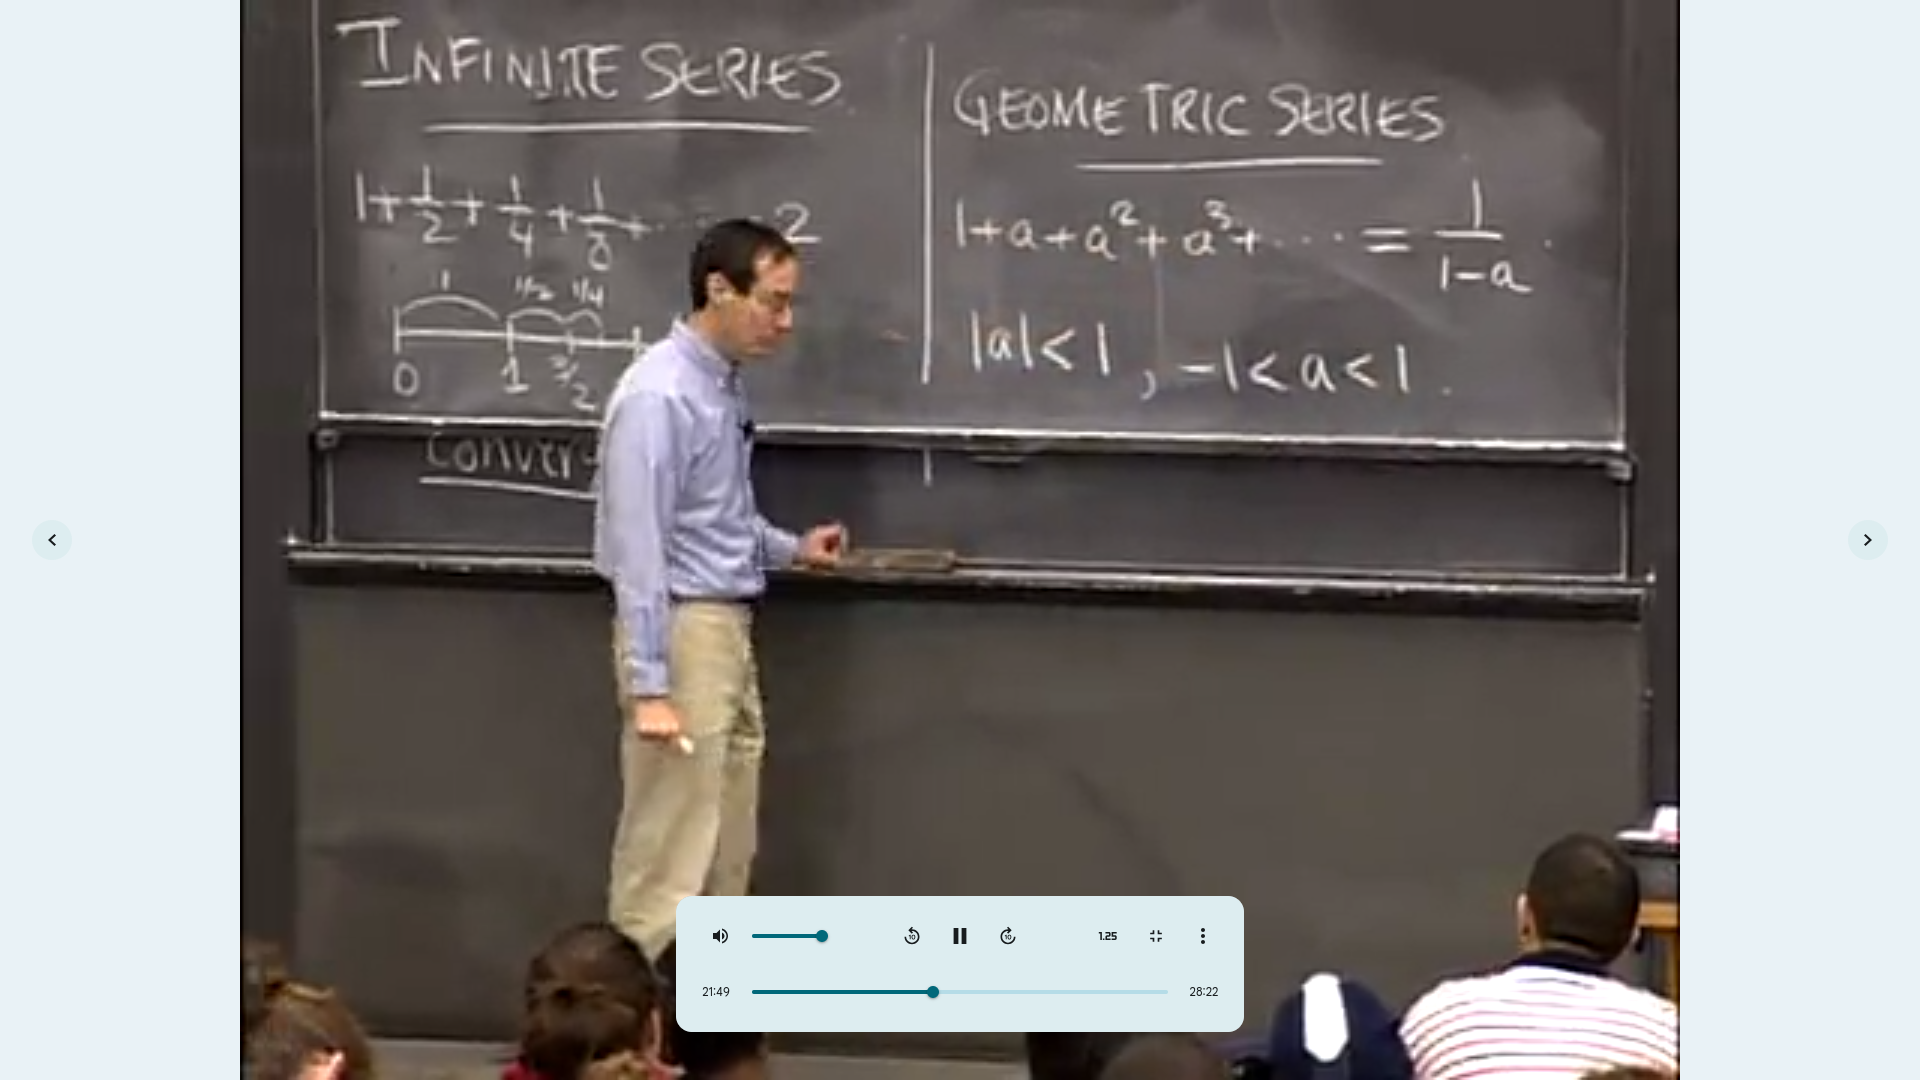 INFINITE SERIES
1 + 1/2 + 1/4 + 1/8 + ... = 2
1 1/2 1/4
0 1 3/2
GEOMETRIC SERIES
1 + a + a² + a³ + ... = 1/(1-a).
|a| < 1, -1 < a < 1.
10 10 1.25
21:49 28:22